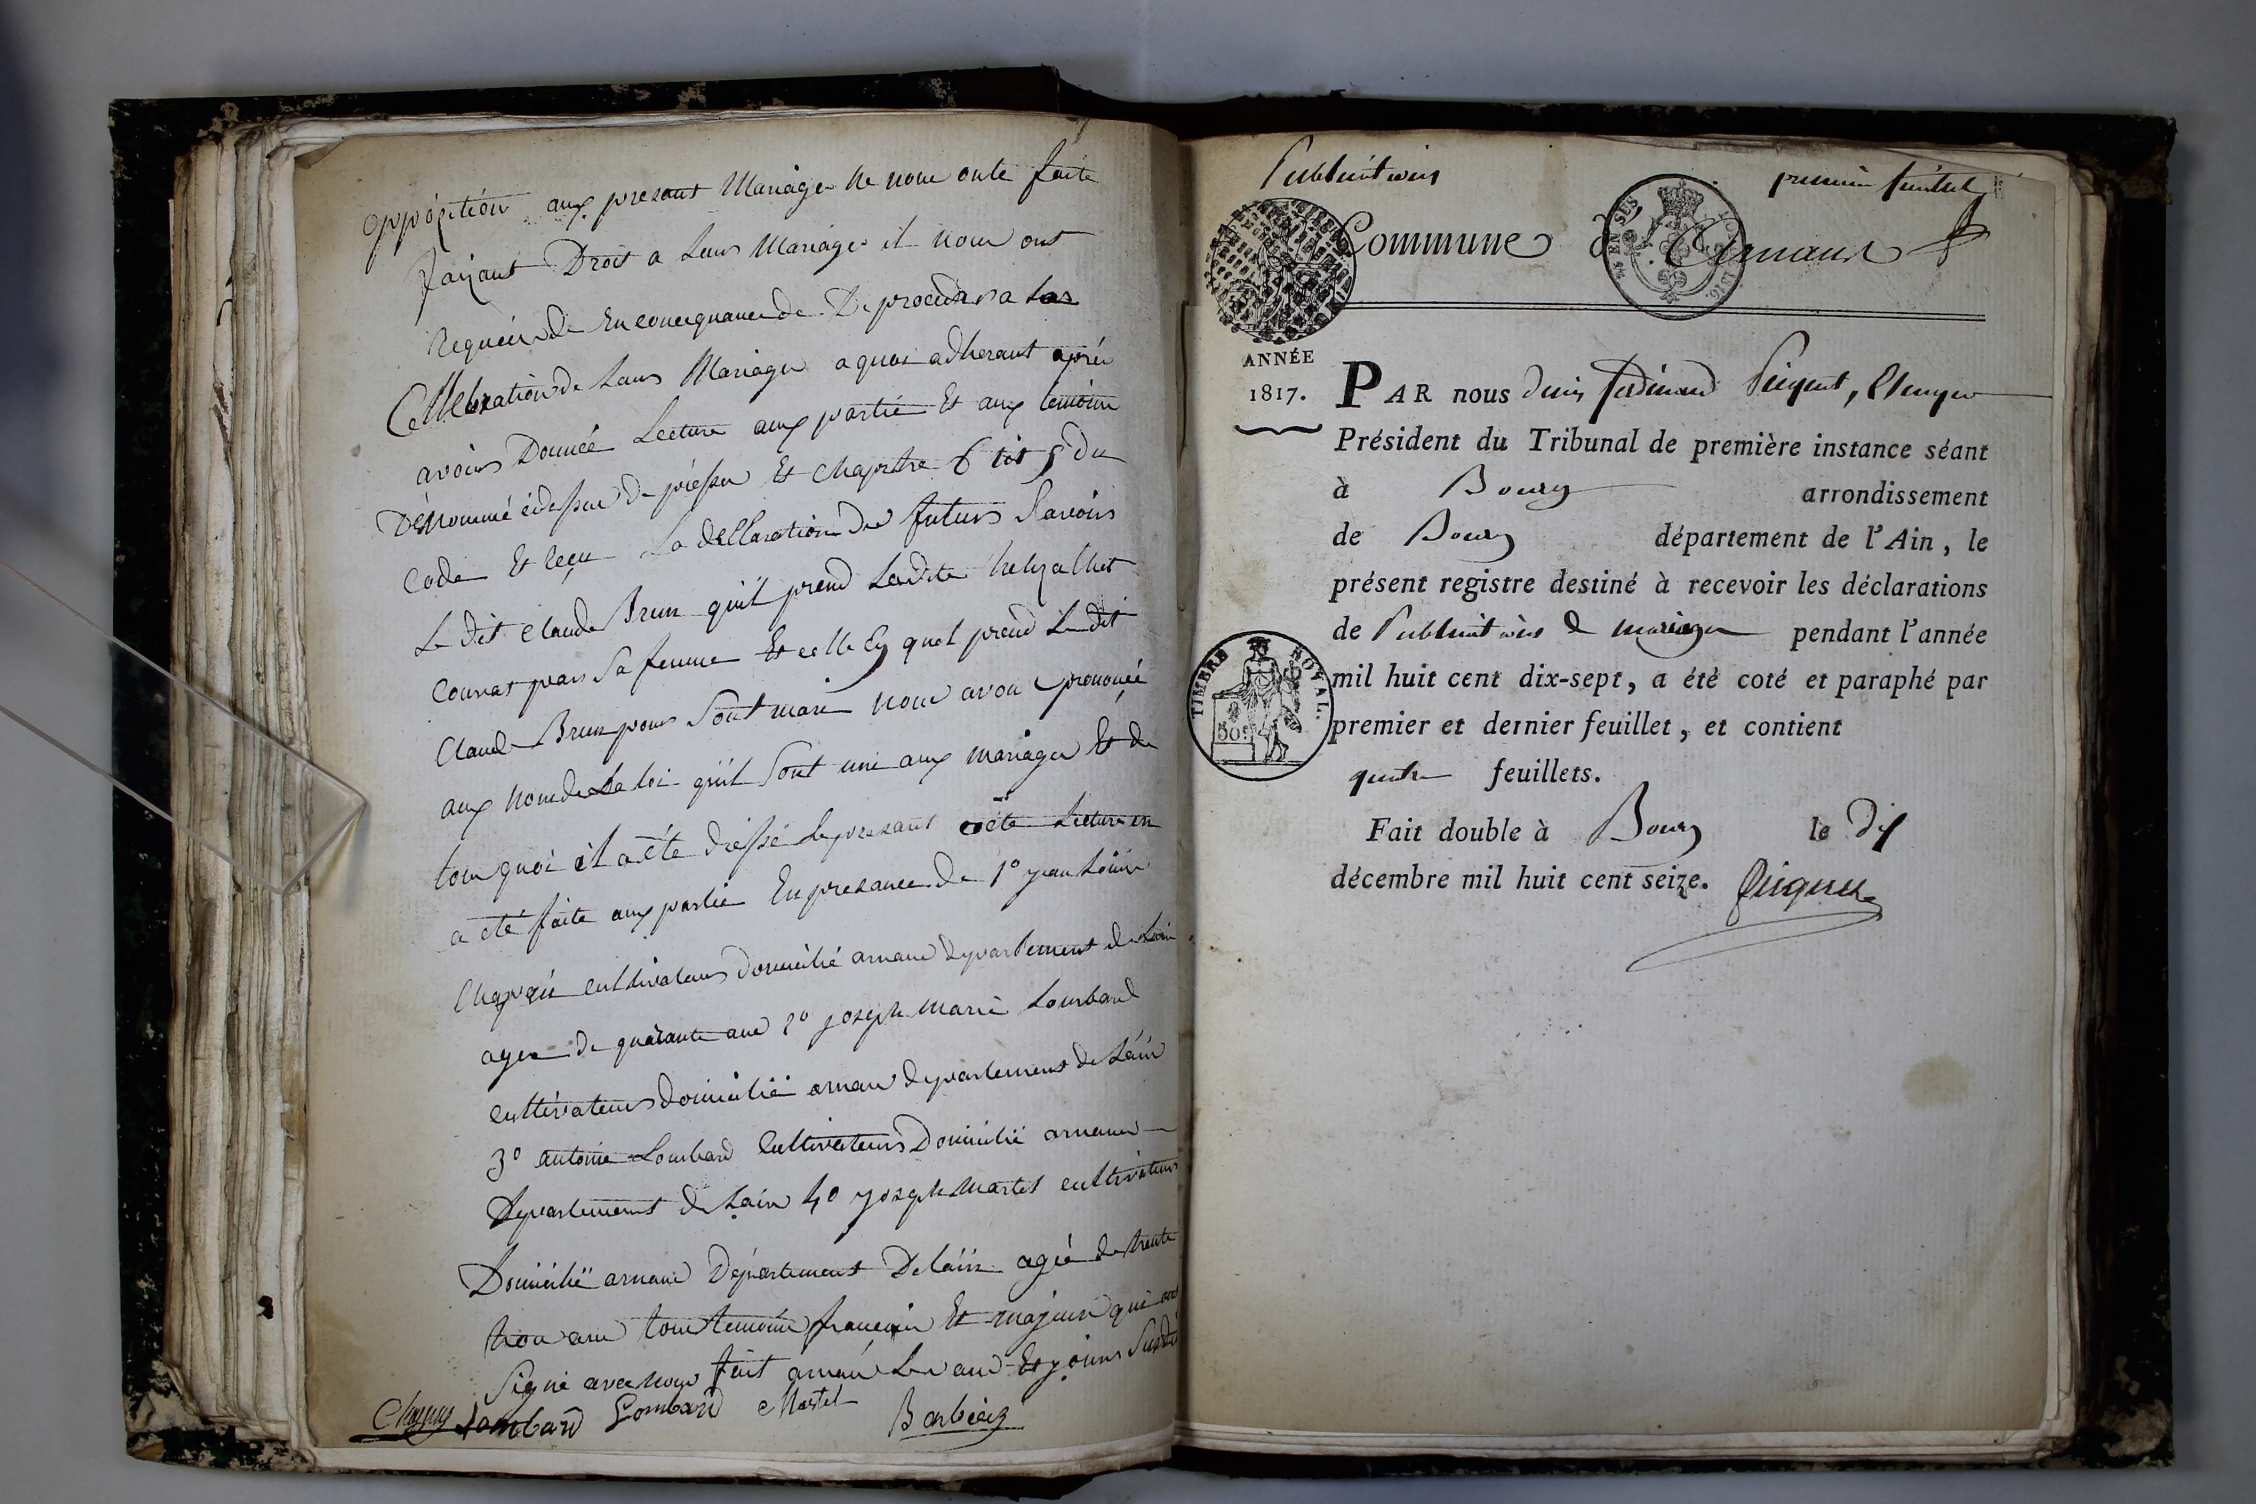 opposition aux presant Mariage ne nous onte faite
faisant Droit a Leur Mariage il nous ont
De procedder a La
Cellebration de Leur Mariage a quoi adherant après
avoir Donnée Lecture aux partie Et aux temoins
De pieſse Et Chapitre 6 tit 5 du
Code Et reçu La dellaration des futurs Savoir
Le Dit Claude Brun qu'il prend Ladite
pour Sa femme Et celle Cy quel prend Le dit
Claude Brun pour Sont mari nous avon prononcé
aux nom de La loi qu'il Sont uni aux mariage Et de
tou quoi il a été dreſsé Le presant acte Lecture en
a été faite aux partie En presance de 1° jean Loüis
Chapuis cultivateur domicilié arnan departement de Lain
agé de quarante ans 2° joseph marie Lombard
cultivateur domicilié arnan departement de Lain
3° antoine Lombard Cultivateur Domicilié arnan
Departement de Lain 4° joseph Martel cultivateur
Domicilié arnan Département De Lain agé de trente
trois ans tous temoins français Et majeur qui ont
Signé avec nous fait arnan Les an Et jour Susdit
Lombard Lombard Martel Barbier
Publications premier feuillet
Commune d'Arnans
EN SUS LOI DE 1816.
ANNÉE
1817.
PAR nous Denis ferdinand Piquet, Chevalier
Président du Tribunal de première instance séant
à Bourg arrondissement
de Bourg département de l'Ain, le
présent registre destiné à recevoir les déclarations
de Publications de mariage pendant l'année
mil huit cent dix-sept, a été coté et paraphé par
premier et dernier feuillet, et contient
quatre feuillets.
TIMBRE ROYAL.
50c
Fait double à Bourg le dix
décembre mil huit cent seize. Piquet